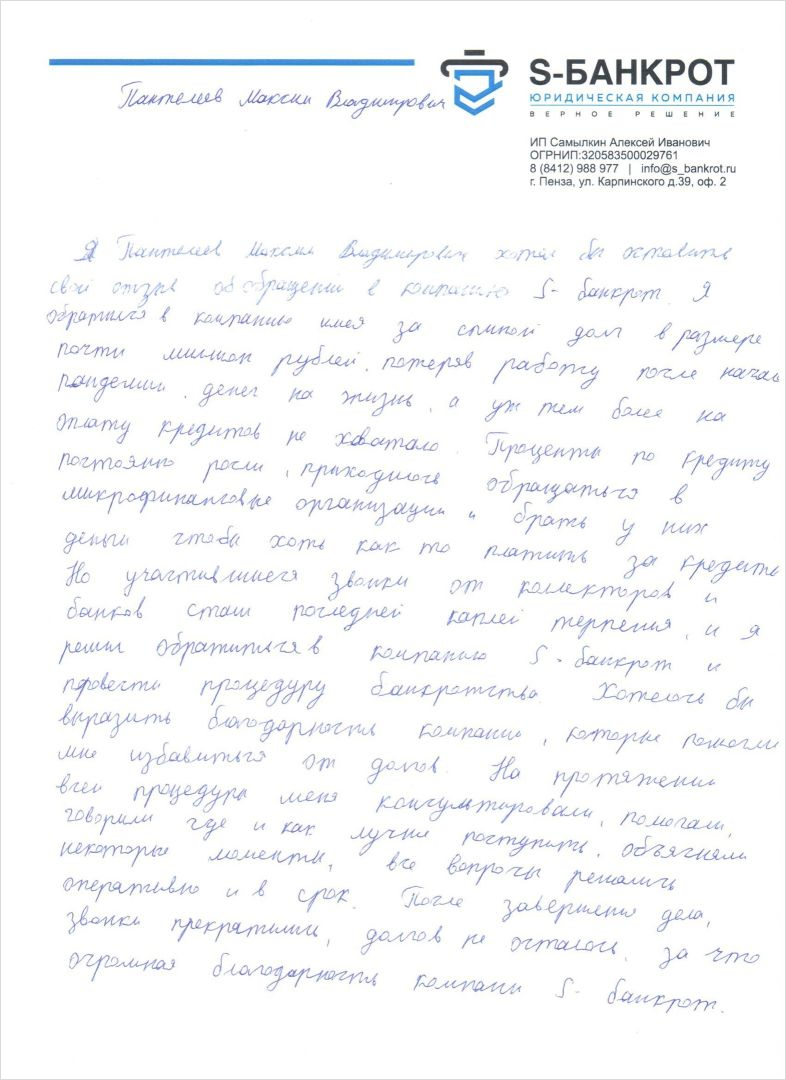 S-БАНКРОТ
ЮРИДИЧЕСКАЯ КОМПАНИЯ
ВЕРНОЕ РЕШЕНИЕ
ИП Самылкин Алексей Иванович
ОГРНИП:320583500029761
8 (8412) 988 977 | info@s_bankrot.ru
г. Пенза, ул. Карпинского д.39, оф. 2
Пантелеев Максим Владимирович
Я Пантелеев Максим Владимирович хотел бы оставить
свой отзыв об обращении в компанию S-банкрот. Я
обратился в компанию имея за спиной долг в размере
почти милион рублей, потеряв работу после начал
пандемии, денег на жизнь, а уж тем более на
оплату кредитов не хватало. Проценты по кредиту
постоянно росли, приходилось обращаться в
микрофинансовые организации и брать у них
деньги чтобы хоть как то платить за кредиты
Но участившиеся звонки от коллекторов и
банков стали последней каплей терпения, и я
решил обратиться в компанию S-банкрот и
провести процедуру банкротства. Хотелось бы
выразить благодарность компании, которые помогли
мне избавиться от долгов. На протяжении
всей процедуры меня консультировали, помогали,
говорили где и как лучше поступить, объясняли
некоторые моменты, все вопросы решались
оперативно и в срок. После завершения дела,
звонки прекратились, долгов не осталось, за что
огромная благодарность компании S-банкрот.